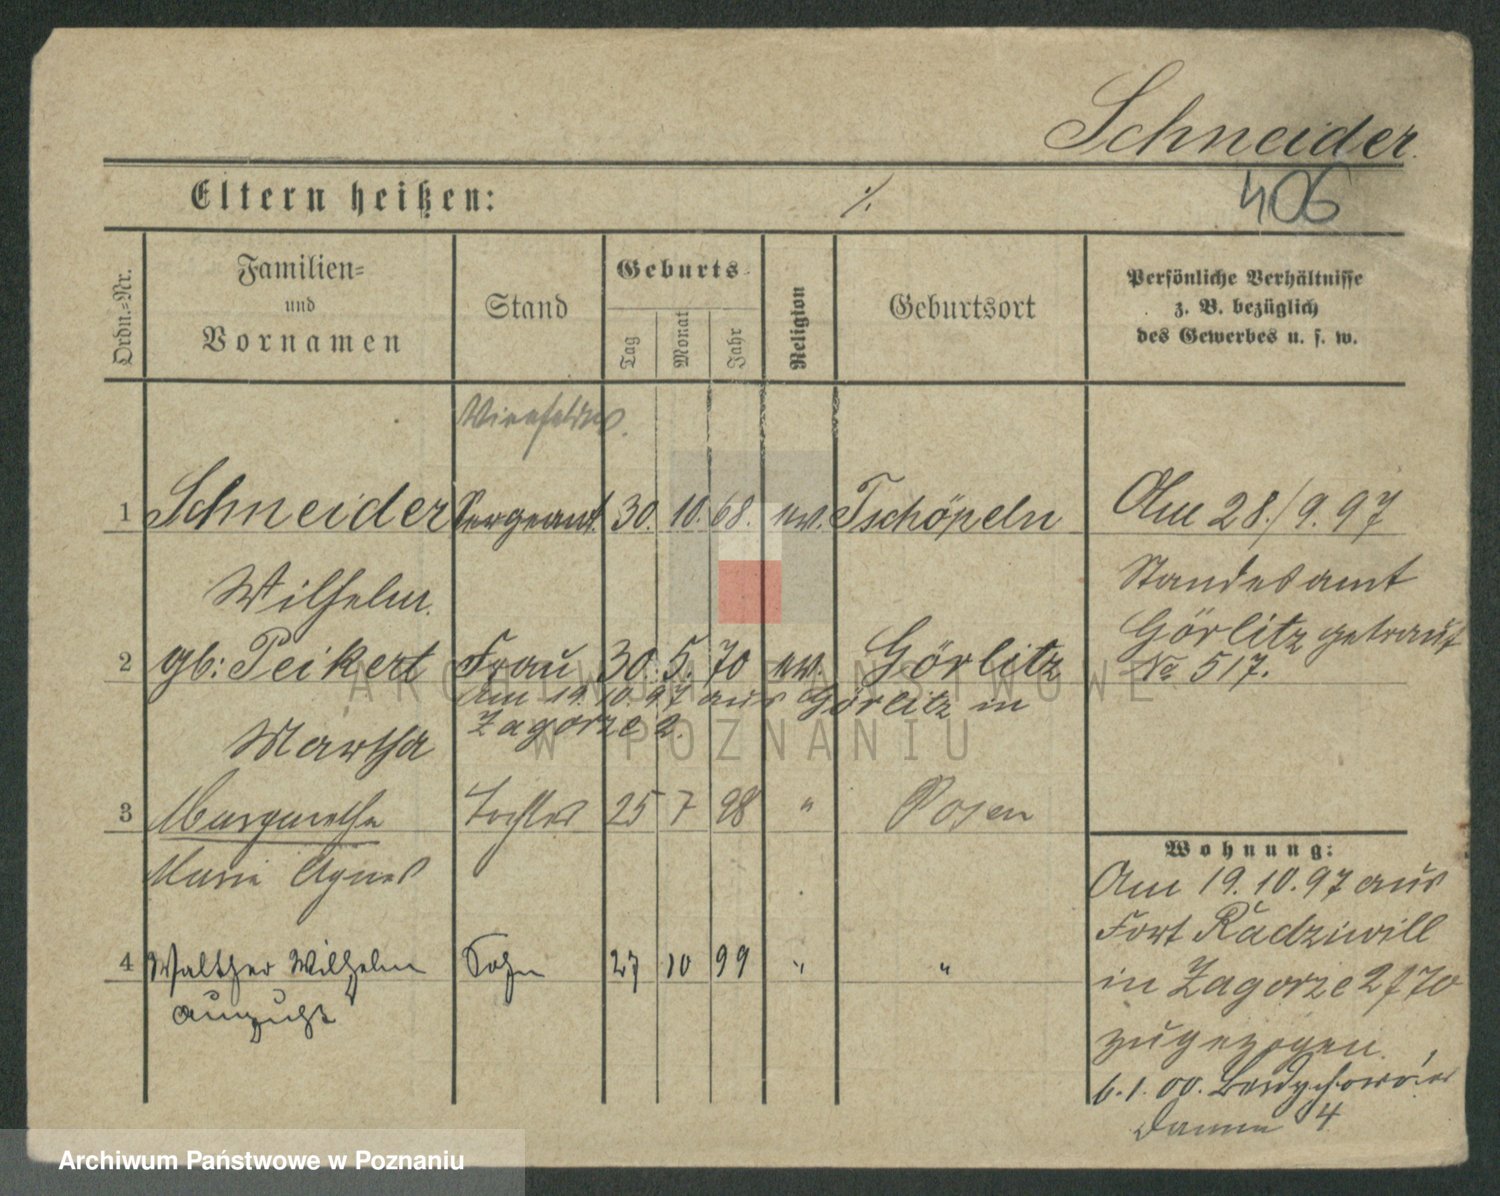 Schneider.
406
Eltern heißen:
./.
Ordn.-Nr.
Familien-
und
Vornamen
Stand
Geburts-
Tag
Monat
Jahr
Religion
Geburtsort
Persönliche Verhältnisse
z. B. bezüglich
des Gewerbes u. s. w.
1 Schneider Sergeant. 30. 10. 68. ev. Tschöpeln
Wilhelm.
2 gb: Peikert Frau 30. 5. 70 ev. Görlitz
Am 19.10.97 aus Görlitz in
Zagorze 2.
Martha
3 Margarethe Tochter 25 7 98 " Posen
Marie Agnes
4 Walther Wilhelm Sohn 27 10 99 " "
August
Am 28./9.97
Standesamt
Görlitz getraut
No 517.
Wohnung:
Am 19.10.97 aus
Fort Radziwill
in Zagorze 2
zugezogen.
6.1.00.
Damm 4
ARCHIWUM PAŃSTWOWE
W POZNANIU
Archiwum Państwowe w Poznaniu